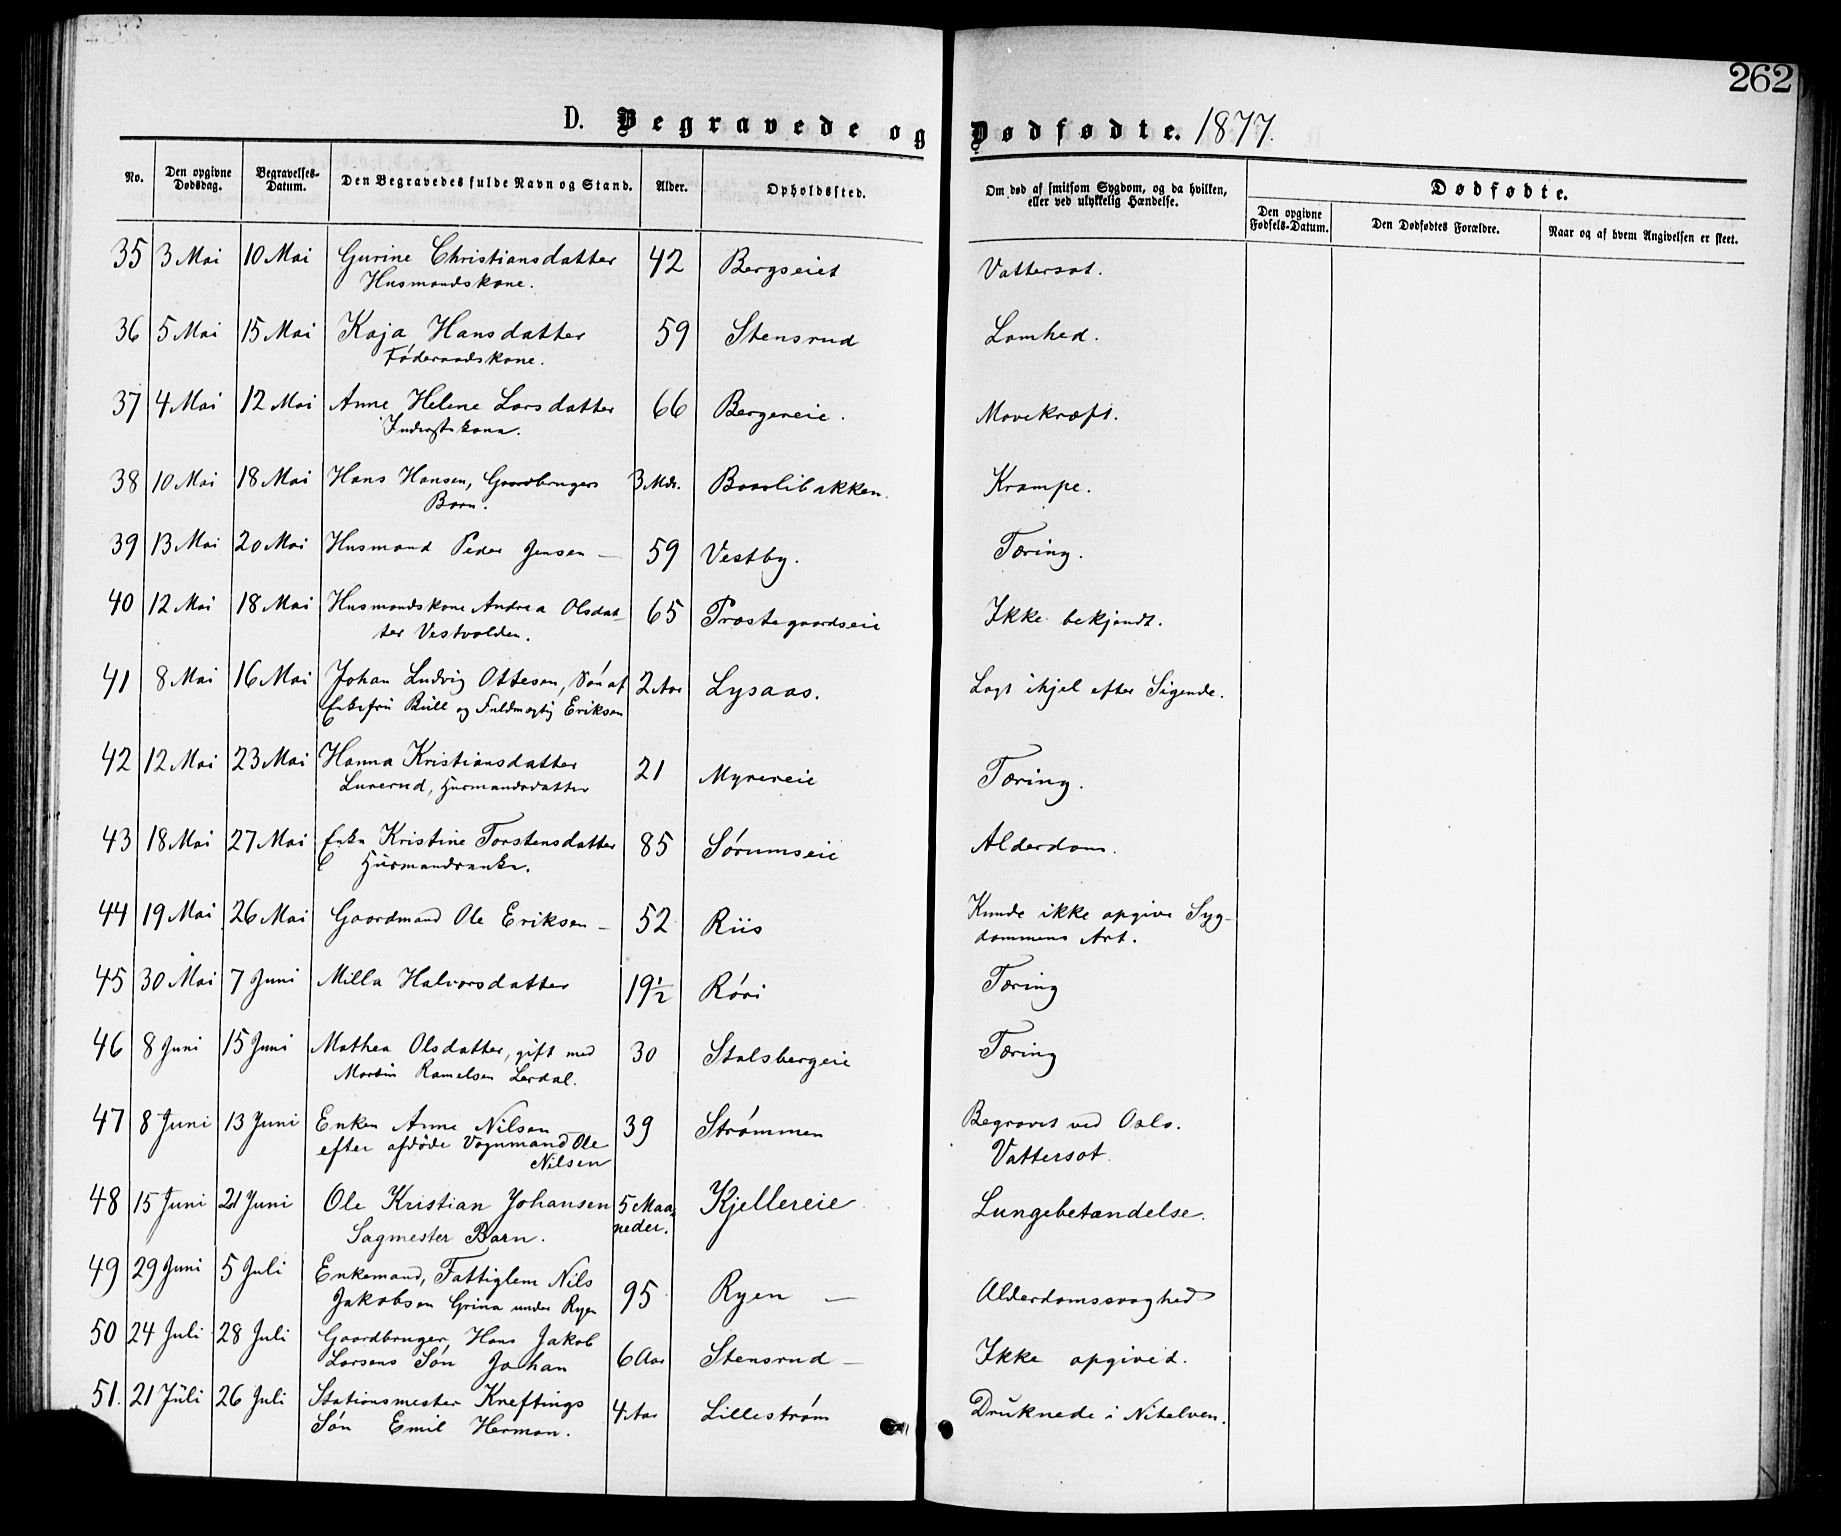 262
D. Begravede og Dødfødte. 1877.
No.
Den opgivne
Dødsdag.
Begravelses-
Datum.
Den Begravedes fulde Navn og Stand.
Alder.
Opholdssted.
Om død af smitsom Sygdom, og da hvilken,
eller ved ulykkelig Hændelse.
Dødfødte.
Den opgivne
Fødsels-Datum.
Den Dødfødtes Forældre.
Naar og af hvem Angivelsen er skeet.
35 3 Mai 10 Mai Gurine Christiansdatter 42 Bergseiet Vattersot.
Husmandskone.
36 5 Mai 15 Mai Kaja Hansdatter 59 Stensrud Lamhed.
Føderaadskone.
37 4 Mai 12 Mai Anne Helene Larsdatter 66 Bergereie. Mavekræft.
Inderstkone.
38 10 Mai 18 Mai Hans Hansen, Gaardbrugers 3 Mdr. Baarlibakken. Krampe.
Barn.
39 13 Mai 20 Mai Husmand Peder Jensen — 59 Vestby. Tæring.
40 12 Mai 18 Mai Husmandskone Andrea Olsdat- 65 Præstegaardseie Ikke bekjendt.
ter Vestvolden.
41 8 Mai 16 Mai Johan Ludvig Ottesen, Søn af 2 Aar Lysaas. Lagt ihjel efter Sigende.
Enkefru Bull og Fuldmægtig Eriksen
42 12 Mai 23 Mai Hanna Kristiansdatter 21 Myrereie Tæring.
Lurerud, Husmandsdatter
43 18 Mai 27 Mai Enke Kristine Torstensdatter 85 Sørumseie Alderdom.
Husmandsenke.
44 19 Mai 26 Mai Gaardmand Ole Eriksen — 52 Riis Kunde ikke opgive Syg-
dommens Art.
45 30 Mai 7 Juni Milla Halvorsdatter 19½ Røri Tæring
46 8 Juni 15 Juni Mathea Olsdatter, gift med 30 Stalsbergeie Tæring
Martin Ramelsen Lerdal.
47 8 Juni 13 Juni Enken Anne Nilsen 39 Strømmen Begravet ved Oslo.
efter afdøde Vognmand Ole Vattersot.
Nilsen
48 15 Juni 21 Juni Ole Kristian Johansen 5 Maa- Kjellereie Lungebetændelse.
Sagmester Barn. neder.
49 29 Juni 5 Juli Enkemand, Fattiglem Nils 95 Ryen — Alderdomssvaghed
Jakobsen Grina under Ryen
50 24 Juli 28 Juli Gaardbruger, Hans Jakob 6 Aar Stensrud — Ikke opgived.
Larsens Søn Johan
51. 21 Juli 26 Juli Stationsmester Kreftings 4 Aar Lillestrøm Druknede i Nitelven.
Søn Emil Herman.